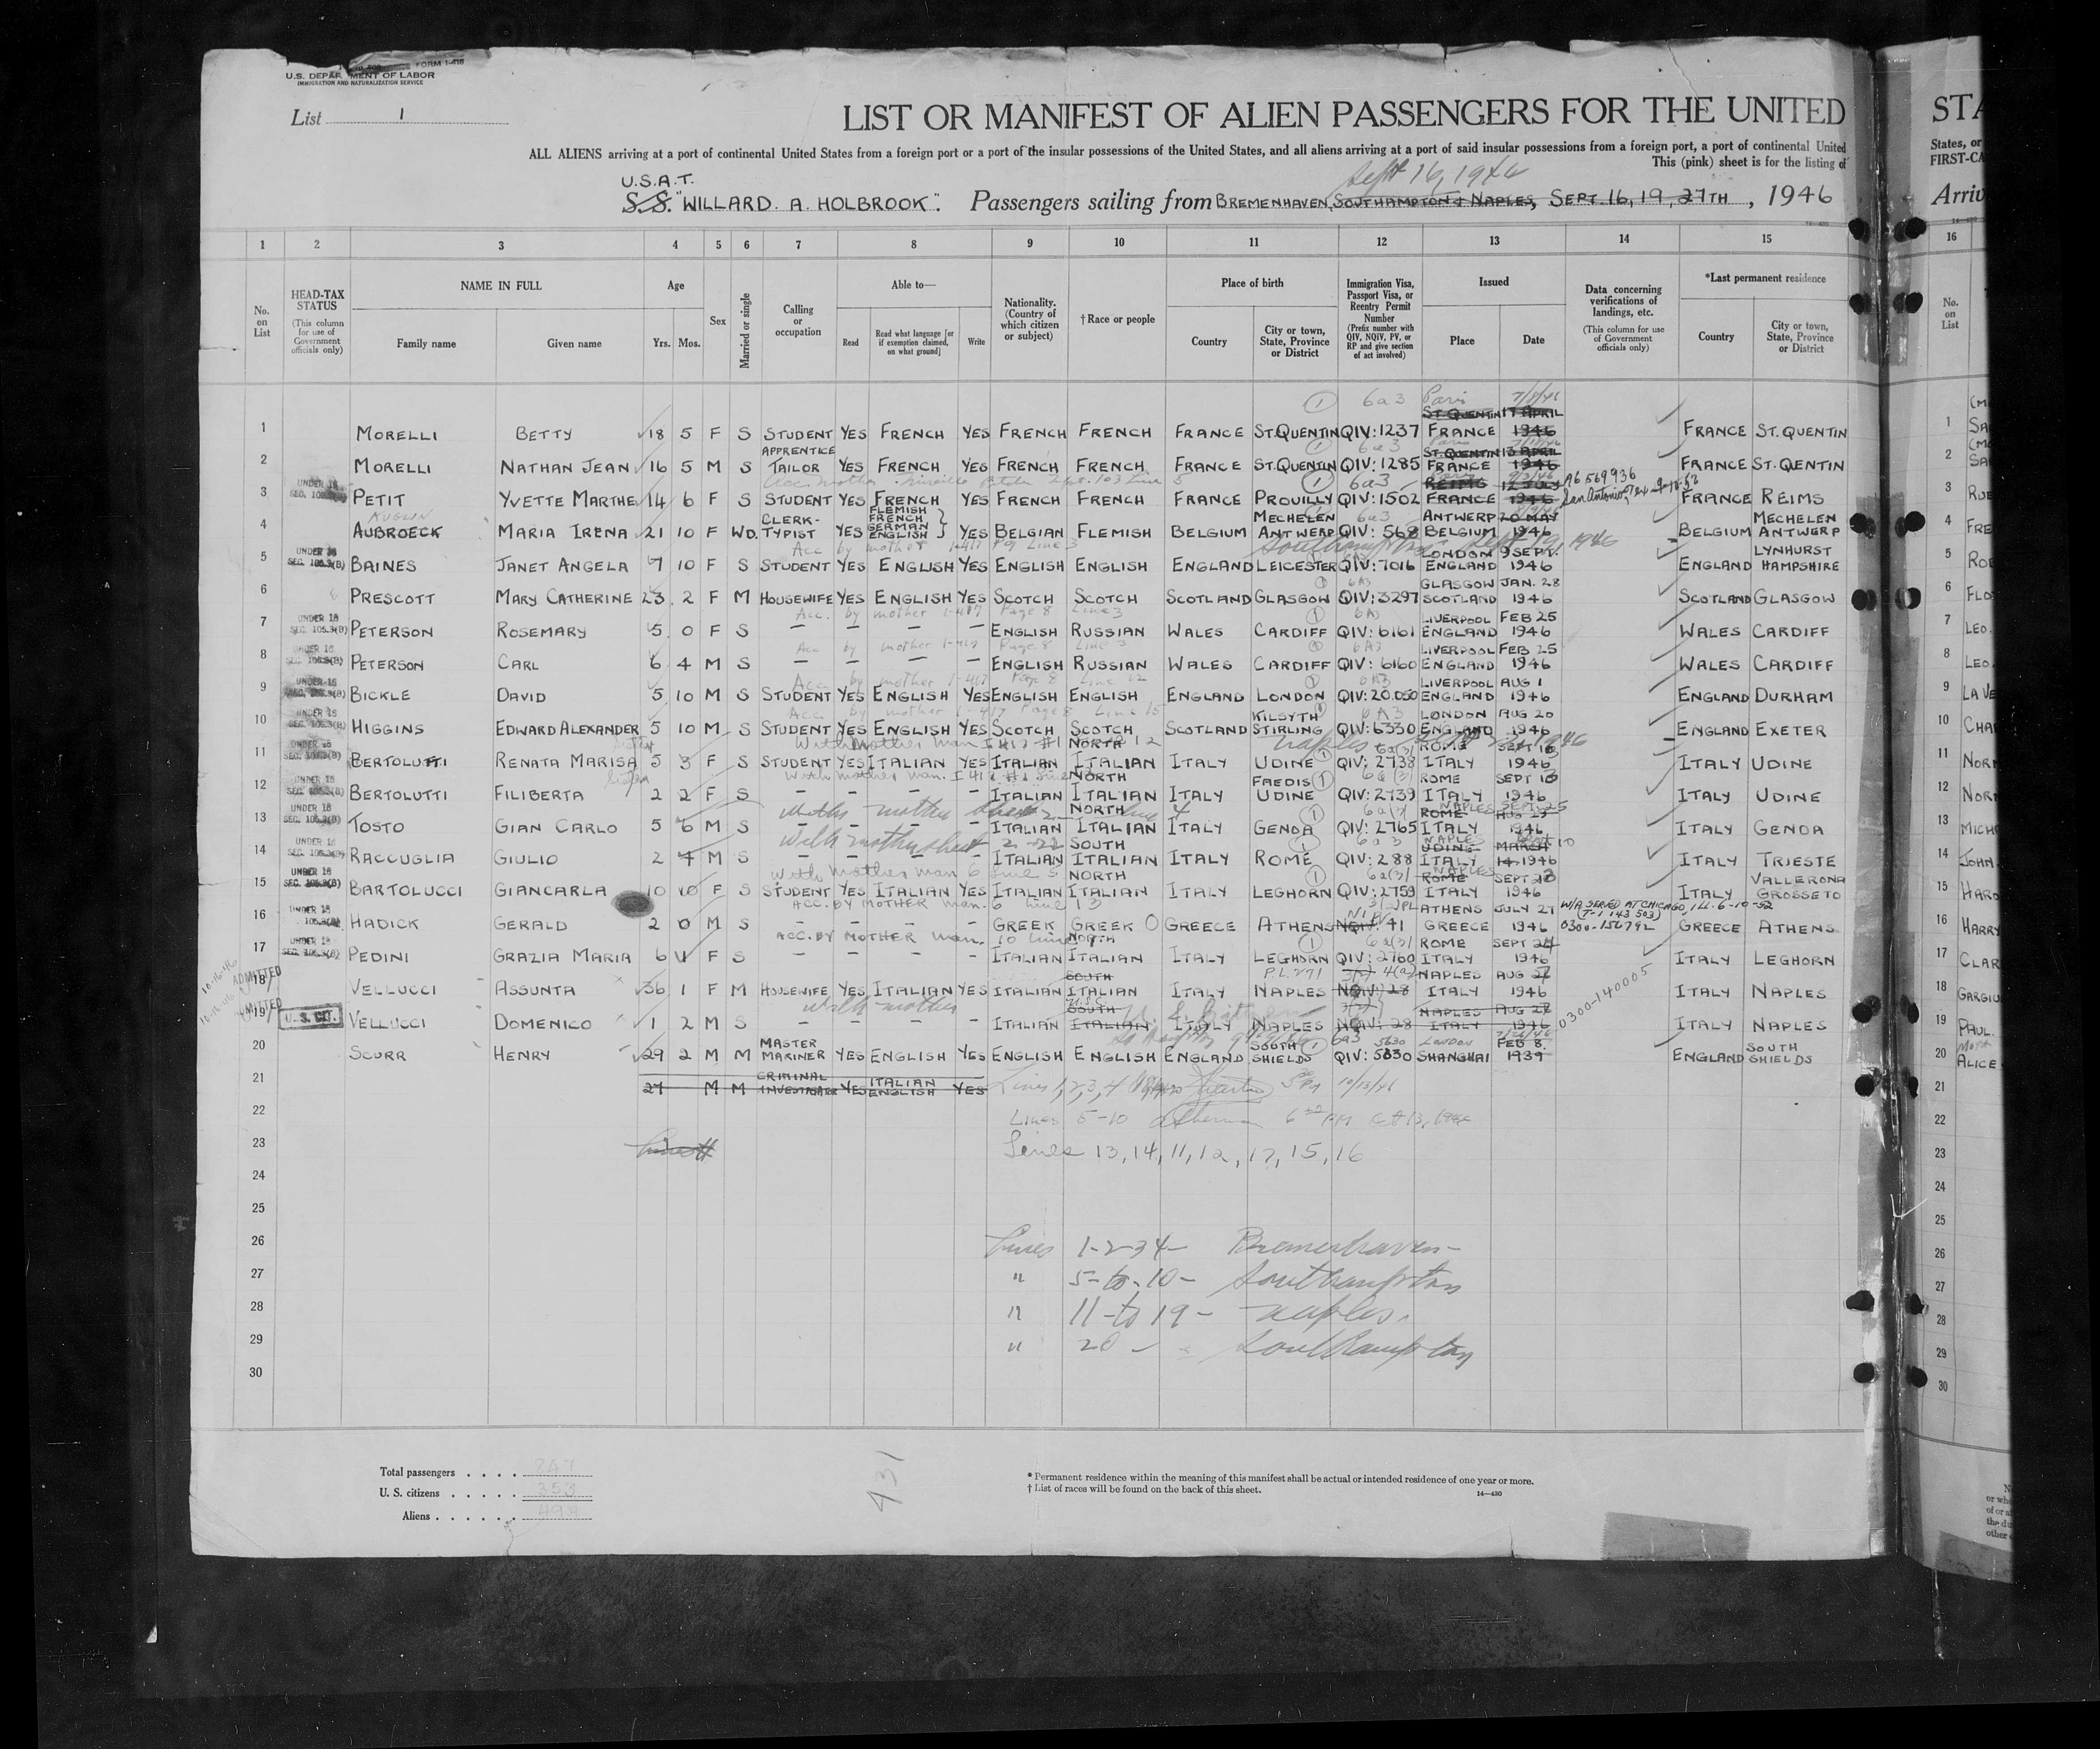 FORM I-418
U.S. DEPARTMENT OF LABOR
IMMIGRATION AND NATURALIZATION SERVICE
List 1
LIST OR MANIFEST OF ALIEN PASSENGERS FOR THE UNITED
ALL ALIENS arriving at a port of continental United States from a foreign port or a port of the insular possessions of the United States, and all aliens arriving at a port of said insular possessions from a foreign port, a port of continental United
This (pink) sheet is for the listing of
Sept 16, 1946
U.S.A.T.
S.S. "WILLARD. A. HOLBROOK". Passengers sailing from BREMENHAVEN, SOUTHAMPTON & NAPLES, SEPT. 16, 19, 27TH, 1946
1 2 3 4 5 6 7 8 9 10 11 12 13 14 15
No. on List
HEAD-TAX STATUS (This column for use of Government officials only)
NAME IN FULL Family name Given name
Age Yrs. Mos.
Sex
Married or single
Calling or occupation
Able to— Read Read what language [or if exemption claimed, on what ground] Write
Nationality. (Country of which citizen or subject)
†Race or people
Place of birth Country City or town, State, Province or District
Immigration Visa, Passport Visa, or Reentry Permit Number (Prefix number with QIV, NQIV, PV, or RP and give section of act involved)
Issued Place Date
Data concerning verifications of landings, etc. (This column for use of Government officials only)
*Last permanent residence Country City or town, State, Province or District
1 6a3 Paris 7/8/46
1 MORELLI BETTY 18 5 F S STUDENT YES FRENCH YES FRENCH FRENCH FRANCE ST.QUENTIN QIV:1237 ST.QUENTIN FRANCE 17 APRIL 1946 FRANCE ST.QUENTIN
2 MORELLI NATHAN JEAN 16 5 M S APPRENTICE TAILOR YES FRENCH YES FRENCH FRENCH FRANCE ST.QUENTIN QIV:1285 ST.QUENTIN FRANCE 13 APRIL 1946 FRANCE ST.QENTIN
A6 569 936
San Antonio, Tex
3 UNDER 16 PETIT YVETTE MARTHE 14 6 F S STUDENT YES FRENCH YES FRENCH FRENCH FRANCE PROUILLY QIV:1502 REIMS FRANCE 12 JULY 1946 FRANCE REIMS
4 AUBROECK MARIA IRENA 21 10 F WD. CLERK-TYPIST YES FLEMISH FRENCH GERMAN ENGLISH YES BELGIAN FLEMISH BELGIUM MECHELEN ANTWERP QIV: 568 ANTWERP BELGIUM 20 MAY 1946 BELGIUM MECHELEN ANTWERP
Acc by mother 1-417 Pg Line 3 Southampton Sept 19, 1946
5 UNDER 16 BAINES JANET ANGELA 7 10 F S STUDENT YES ENGLISH YES ENGLISH ENGLISH ENGLAND LEICESTER QIV:7016 LONDON ENGLAND 9 SEPT. 1946 ENGLAND LYNHURST HAMPSHIRE
6 PRESCOTT MARY CATHERINE 23 2 F M HOUSEWIFE YES ENGLISH YES SCOTCH SCOTCH SCOTLAND GLASGOW QIV:3297 GLASGOW SCOTLAND JAN. 28 1946 SCOTLAND GLASGOW
Acc. by mother 1-417 Page 8 Line 3
7 UNDER 16 PETERSON ROSEMARY 5 0 F S – – – – ENGLISH RUSSIAN WALES CARDIFF QIV: 6161 LIVERPOOL ENGLAND FEB 25 1946 WALES CARDIFF
Acc by mother 1-417 Page 8 Line 3
8 UNDER 16 PETERSON CARL 6 4 M S – – – – ENGLISH RUSSIAN WALES CARDIFF QIV: 6160 LIVERPOOL ENGLAND FEB 25 1946 WALES CARDIFF
Acc. by mother 1-417 Page 8 Line 12
9 UNDER 16 BICKLE DAVID 5 10 M S STUDENT YES ENGLISH YES ENGLISH ENGLISH ENGLAND LONDON QIV:20.050 LIVERPOOL ENGLAND AUG 1 1946 ENGLAND DURHAM
Acc. by mother 1-417 Page 8 Line 15
10 UNDER 16 HIGGINS EDWARD ALEXANDER 5 10 M S STUDENT YES ENGLISH YES SCOTCH SCOTCH SCOTLAND KILSYTH STIRLING QIV:6330 LONDON ENGLAND AUG 20 1946 ENGLAND EXETER
11 UNDER 16 BERTOLUTTI RENATA MARISA 5 3 F S STUDENT YES ITALIAN YES ITALIAN NORTH ITALIAN ITALY UDINE QIV: 2738 ROME ITALY SEPT 13 1946 ITALY UDINE
12 UNDER 16 BERTOLUTTI FILIBERTA 2 2 F S – – – – ITALIAN NORTH ITALIAN ITALY FAEDIS UDINE QIV:2739 ROME ITALY SEPT 13 1946 ITALY UDINE
13 UNDER 16 TOSTO GIAN CARLO 5 6 M S – – – – ITALIAN NORTH ITALIAN ITALY GENOA QIV:2765 NAPLES ROME ITALY SEPT. 25 AUG 29 1946 ITALY GENOA
With mother sheet 2
14 UNDER 16 RACCUGLIA GIULIO 2 4 M S – – – – ITALIAN SOUTH ITALIAN ITALY ROME QIV: 288 NAPLES UDINE ITALY MARCH 14 1946 ITALY TRIESTE
With mother man 6 Line 5
15 UNDER 16 BARTOLUCCI GIANCARLA 10 10 F S STUDENT YES ITALIAN YES ITALIAN NORTH ITALIAN ITALY LEGHORN QIV:2759 NAPLES ROME ITALY SEPT 23 1946 ITALY VALLERONA GROSSETO
ACC. BY MOTHER man. 6 line 13
W/A SERVED AT CHICAGO, ILL. 6-10-52
(T-1 143 503)
0300-156792
16 UNDER 16 HADICK GERALD 2 0 M S – – – – GREEK GREEK GREECE ATHENS NQIV: 41 ATHENS GREECE JULY 27 1946 GREECE ATHENS
ACC. BY MOTHER man. 10 line
17 UNDER 16 PEDINI GRAZIA MARIA 6 11 F S – – – – ITALIAN NORTH ITALIAN ITALY LEGHORN QIV: 2760 ROME ITALY SEPT 24 1946 ITALY LEGHORN
ADMITTED 18 VELLUCCI ASSUNTA 36 1 F M HOUSEWIFE YES ITALIAN YES ITALIAN SOUTH ITALIAN ITALY NAPLES NQIV: 28 NAPLES ITALY AUG 27 1946 ITALY NAPLES
0300-140005
with mother
ADMITTED 19 U.S. CIT. VELLUCCI DOMENICO 1 2 M S – – – – ITALIAN U.S.C. SOUTH ITALIAN ITALY NAPLES NQIV: 28 NAPLES ITALY AUG 27 1946 ITALY NAPLES
20 SCURR HENRY 29 2 M M MASTER MARINER YES ENGLISH YES ENGLISH ENGLISH ENGLAND SOUTH SHIELDS QIV: 5830 LONDON SHANGHAI FEB 8. 1939 ENGLAND SOUTH SHIELDS
21 27 M M CRIMINAL INVESTIGATOR YES ITALIAN ENGLISH YES Lines 1,2,3,4 10/13/46
22 Lines 5-10
23 Lines 13, 14, 11, 12, 17, 15, 16
24
25
26 Lines 1-2-3-4- Bremerhaven-
27 " 5-to-10- Southampton
28 " 11-to 19- Naples.
29 " 20 - Southampton
30
Total passengers
U. S. citizens 353
Aliens
931
* Permanent residence within the meaning of this manifest shall be actual or intended residence of one year or more.
† List of races will be found on the back of this sheet.
14—430
STA
States, or
FIRST-CA
Arriv
16
No. on List
1
2
3
4
5
6
7 LEO.
8 LEO.
9 LA VE
10
11
12
13 MICH
14 JOHN
15
16 HARRY
17 CLAR
18 GARGIU
19 PAUL.
20 ALICE
21
22
23
24
25
26
27
28
29
30